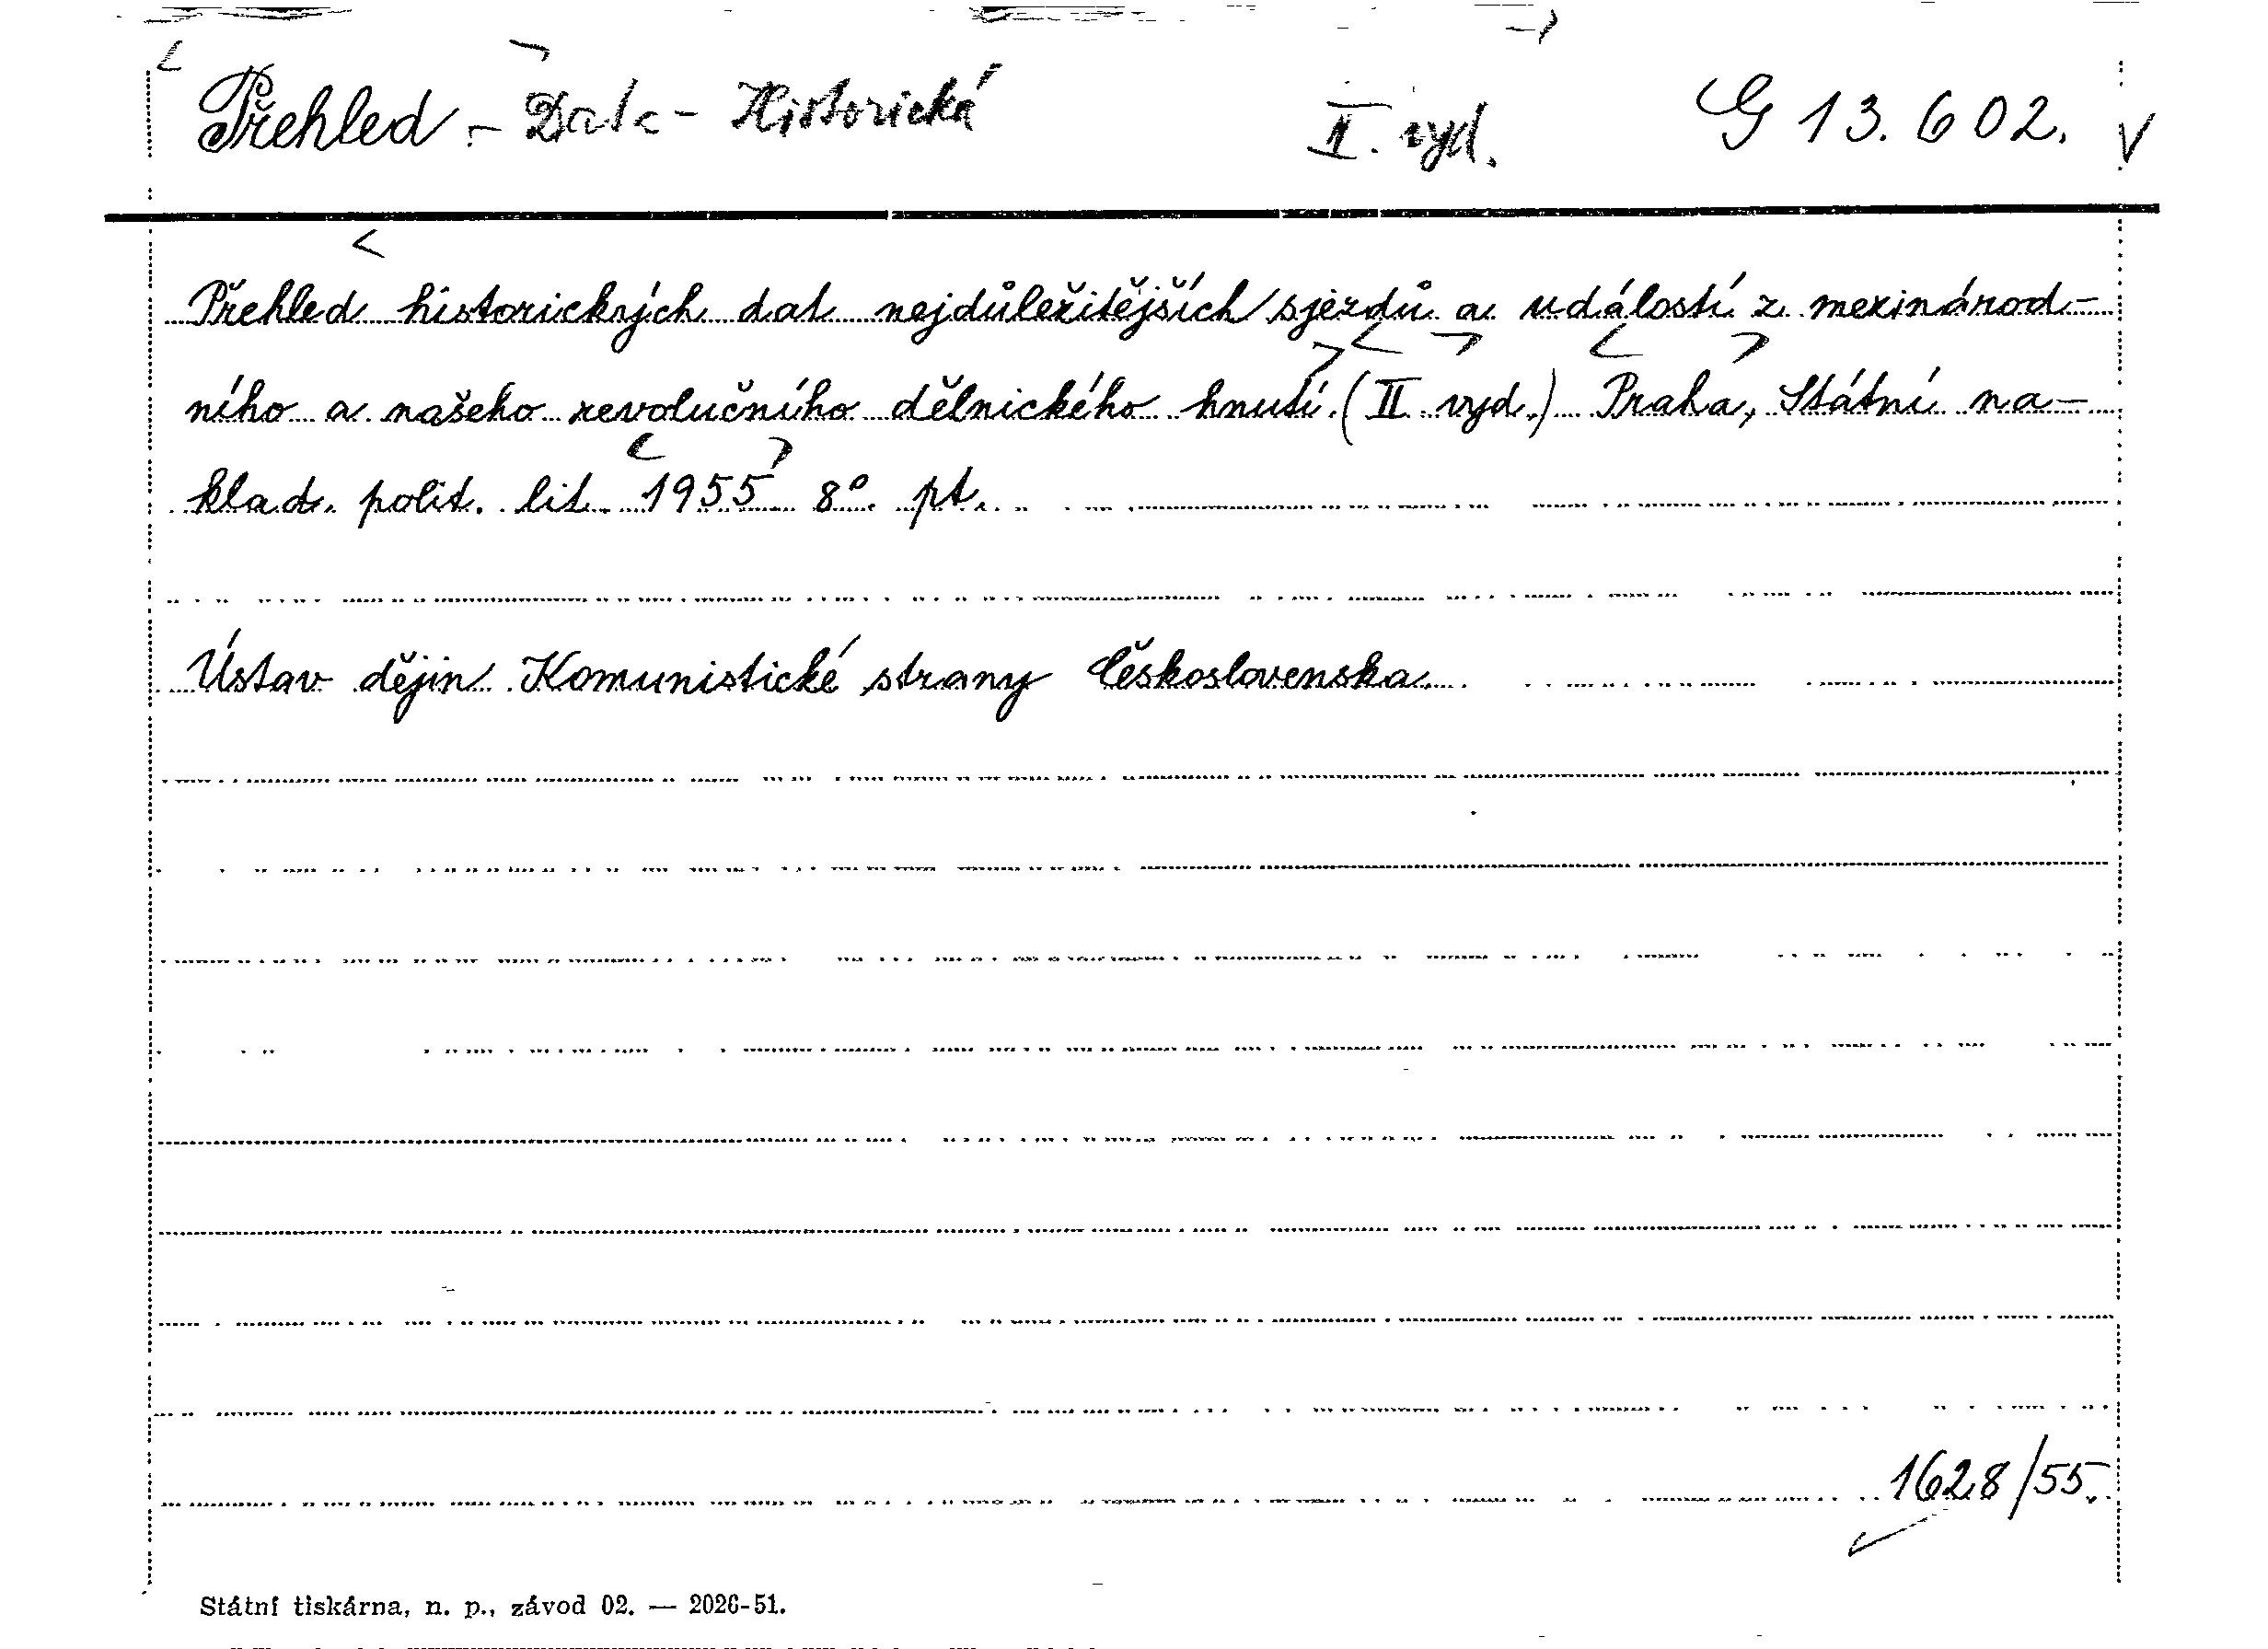 Přehled - Data - Historická II. vyd. G 13.602. V
Přehled historických dat nejdůležitějších sjezdů a událostí z mezinárod-
ního a našeho revolučního dělnického hnutí. (II vyd.) Praha, Státní na-
klad. polit. lit. 1955 8°. pt.
Ústav dějin Komunistické strany Československa
1628/55.
Státní tiskárna, n. p., závod 02. — 2026-51.